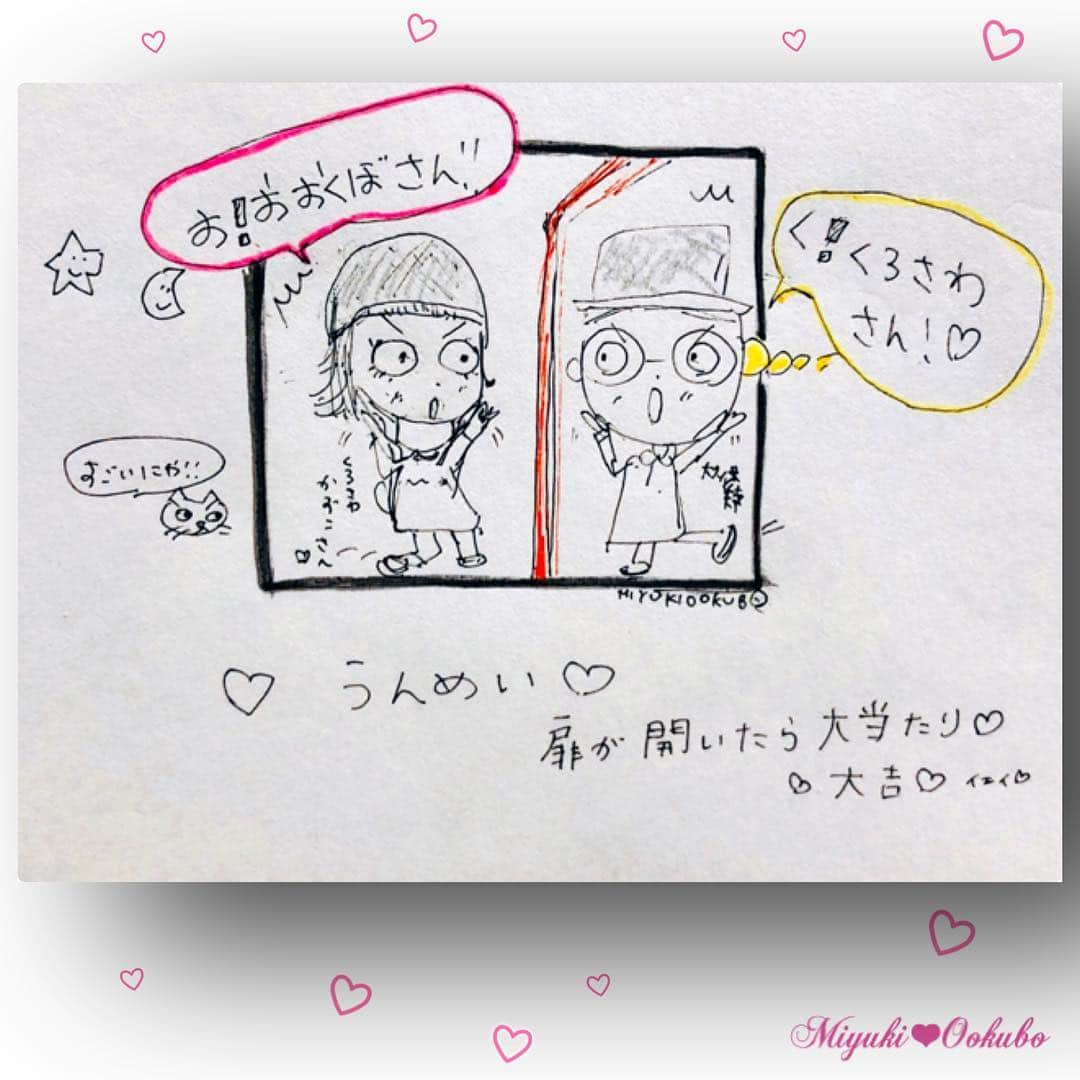 お!おおくぼさん!!
く!くろさわ
さん!♡
すごいにゃ!!
くろさわ
かずこさん
♡
MIYUKIOOKUBO
♡ うんめい ♡
扉が開いたら大当たり♡
♡大吉♡ イエイ♡
Miyuki❤Ookubo